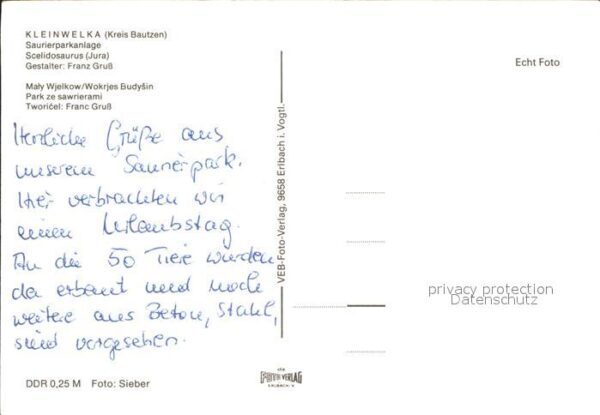 KLEINWELKA (Kreis Bautzen)
Saurierparkanlage
Scelidosaurus (Jura)
Gestalter: Franz Gruß
Mały Wjelkow/Wokrjes Budyšin
Park ze sawrierami
Tworićel: Franc Gruß
Echt Foto
Herzliche Grüße aus
unserem Saurierpark.
Hier verbrachten wir
einen Urlaubstag.
An die 50 Tiere wurden
da erbaut und noch
weitere aus Beton, Stahl,
sind vorgesehen.
VEB-Foto-Verlag, 9658 Erlbach i. Vogtl.
privacy protection
Datenschutz
DDR 0,25 M Foto: Sieber
VERLAG